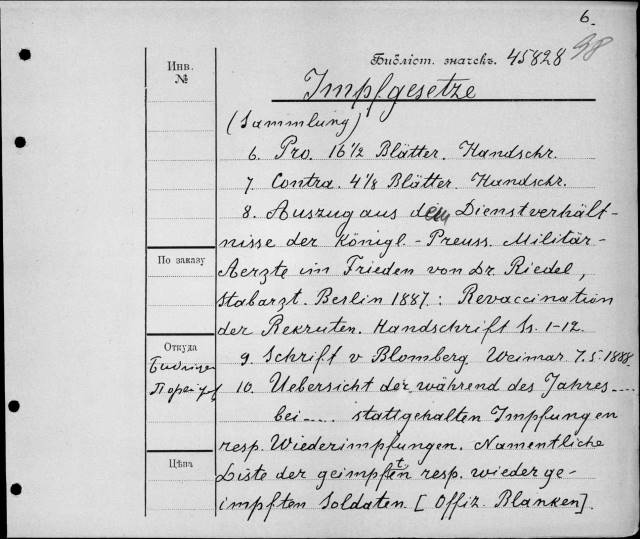 6.
Библіот. значекъ. 45828 38
Инв.
№
Impfgesetze
(Sammlung)
6. Pro. 16 1/2 Blätter. Handschr.
7. Contra. 4 1/8 Blätter. Handschr.
8. Auszug aus dem Dienstverhält-
nisse der Königl.-Preuss. Militär-
По заказу
Aerzte im Frieden von Dr. Riedel,
Stabarzt. Berlin 1887.: Revaccination
der Rekruten. Handschrift Ss. 1-12.
Откуда
9. Schrift v Blomberg. Weimar 7.5.1888.
10. Uebersicht der während des Jahres....
bei.... stattgehalten Impfungen
resp. Wiederimpfungen. Namentliche
Цѣна
Liste der geimpften resp. wiederge-
impften Soldaten. [Offiz. Blanken].